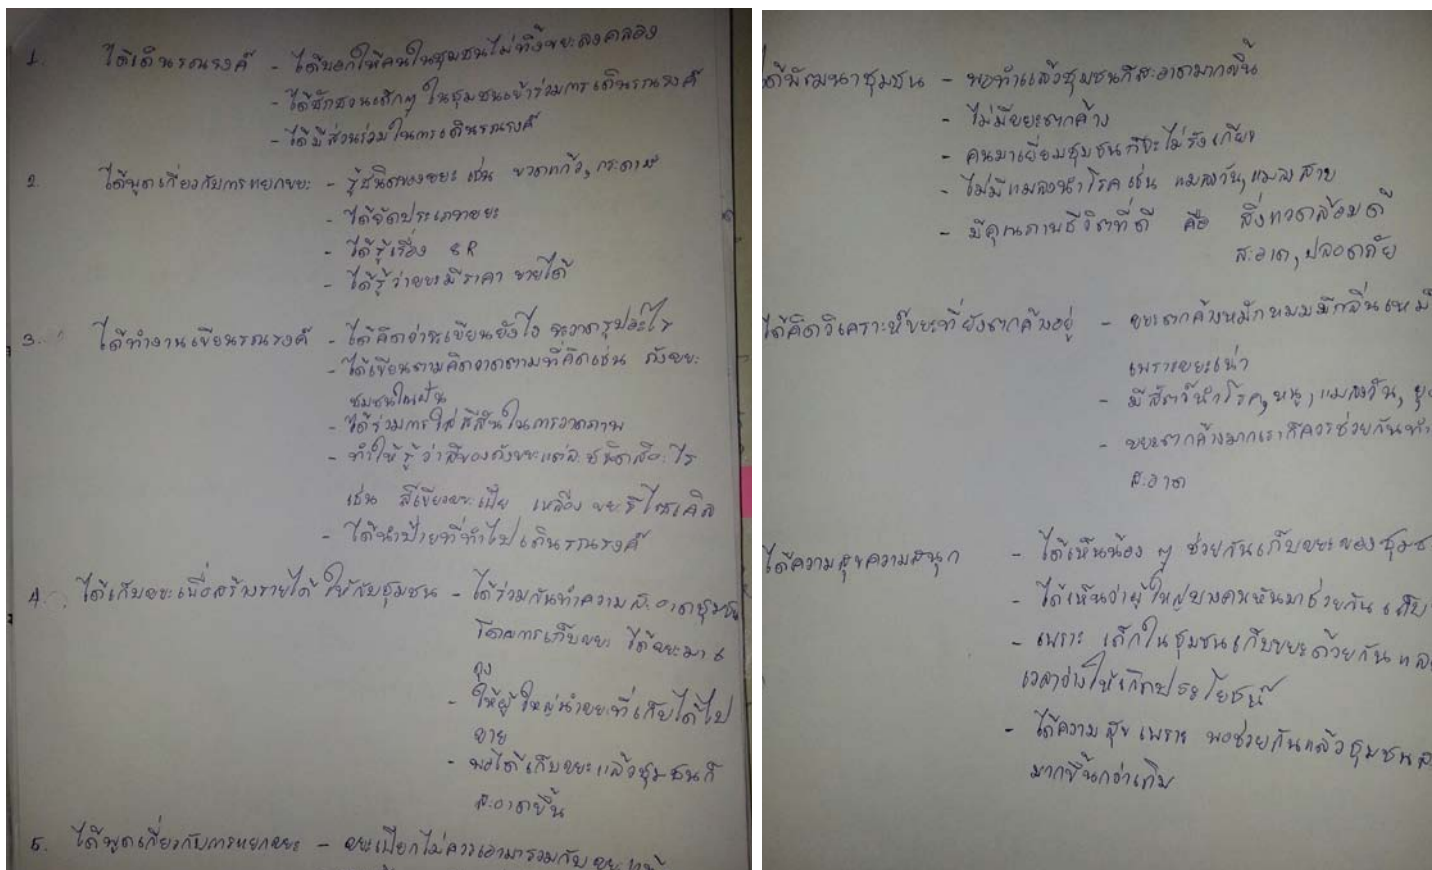 1. ได้เดินรณรงค์ - ได้บอกให้คนในชุมชนไม่ทิ้งขยะลงคลอง
- ได้ชักชวนเด็กๆ ในชุมชนเข้าร่วมการเดินรณรงค์
- ได้มีส่วนร่วมในการเดินรณรงค์
2. ได้พูดเกี่ยวกับการแยกขยะ - รู้ชนิดของขยะ เช่น ขวดแก้ว, กระดาษ
- ได้จัดประเภทขยะ
- ได้รู้เรื่อง 8R
- ได้รู้ว่าขยะมีราคา ขายได้
3. ได้ทำงานเขียนรณรงค์ - ได้คิดว่าจะเขียนยังไง จะวาดรูปอะไร
- ได้เขียนตามคิดวาดตามที่คิดเช่น ถังขยะ
ชุมชนในฝัน
- ได้ร่วมการใส่สีสันในการวาดภาพ
- ทำให้รู้ว่าสีของถังขยะแต่ละชนิดสีอะไร
เช่น สีเขียวขยะเปียก เหลือง ขยะรีไซเคิล
- ได้นำป้ายที่ทำไปเดินรณรงค์
4. ได้เก็บขยะเพื่อสร้างรายได้ให้กับชุมชน - ได้ร่วมกันทำความสะอาดชุมชน
โดยการเก็บขยะ ได้ขยะมา 6
ถุง
- ให้ผู้ใหญ่นำขยะที่เก็บได้ไป
ขาย
- พอได้เก็บขยะแล้วชุมชนก็
สะอาดขึ้น
5. ได้พูดเกี่ยวกับการแยกขยะ - ขยะเปียกไม่ควรเอามารวมกับขยะ
ได้พัฒนาชุมชน - พอทำแล้วชุมชนก็สะอาดมากขึ้น
- ไม่มีขยะตกค้าง
- คนมาเยี่ยมชุมชนก็จะไม่รังเกียจ
- ไม่มีแมลงนำโรค เช่น แมลงวัน, แมลงสาบ
- มีคุณภาพชีวิตที่ดี คือ สิ่งแวดล้อมดี
สะอาด, ปลอดภัย
ได้คิดวิเคราะห์ขยะที่ยังตกค้างอยู่ - ขยะตกค้างหมักหมมมีกลิ่นเหม็
เพราะขยะเน่า
- มีสัตว์นำโรค, หนู, แมลงวัน, ยุ
- ขยะตกค้างมากเราก็ควรช่วยกันทำ
สะอาด
ได้ความสุขความสนุก - ได้เห็นน้องๆ ช่วยกันเก็บขยะของชุมช
- ได้เห็นว่าผู้ใหญ่บางคนหันมาช่วยกันเก็บ
- เพราะ เด็กในชุมชนเก็บขยะด้วยกัน แล
เวลาว่างให้เกิดประโยชน์
- ได้ความสุข เพราะ พอช่วยกันแล้วชุมชนส
มากขึ้นกว่าเดิม